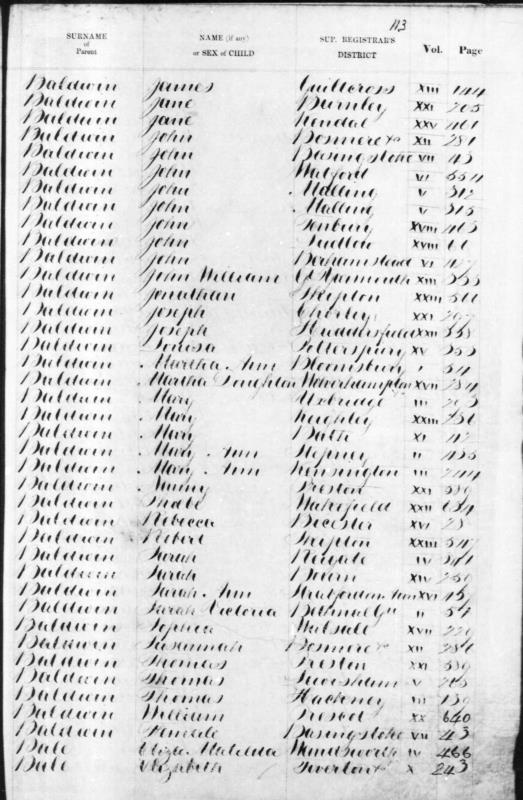 113
SURNAME of Parent NAME (if any) or SEX of CHILD SUP. REGISTRAR'S DISTRICT Vol. Page
Baldwin James Guiltcross XIII 144
Baldwin Jane Burnley XXI 205
Baldwin Jane Kendal XXV 461
Baldwin John Bosmere &c XII 281
Baldwin John Basingstoke VII 43
Baldwin John Watford VI 554
Baldwin John Malling V 312
Baldwin John Malling V 315
Baldwin John Tenbury XVIII 463
Baldwin John Ludlow XVIII 61
Baldwin John Berkhamstead VI
Baldwin John William Gt Yarmouth XIII
Baldwin Jonathan Skipton XXIII 511
Baldwin Joseph Chorley XXI 297
Baldwin Joseph Huddersfield XXII 338
Baldwin Louisa Potterspury XV 353
Baldwin Martha Ann Bloomsbury I 54
Baldwin Martha Wolverhampton XVII 784
Baldwin Mary Uxbridge III
Baldwin Mary Keighley XXIII 756
Baldwin Mary Bath XI 112
Baldwin Mary Ann Stepney II 455
Baldwin Mary Ann Kensington III 244
Baldwin Nanny Preston XXI 539
Baldwin Phebe Wakefield XXII 634
Baldwin Rebecca Bicester XVI 28
Baldwin Robert Skipton XXIII 547
Baldwin Sarah Reigate IV 361
Baldwin Sarah Bourn XIV 259
Baldwin Sarah Ann Stratford on Avon XVI 459
Baldwin Sarah Victoria Bethnal Gn II 54
Baldwin Sophia Walsall XVII 729
Baldwin Susannah Bosmere &c XII 281
Baldwin Thomas Preston XXI 539
Baldwin Thomas Faversham V 203
Baldwin Thomas Hackney III 139
Baldwin William Prescot XX 640
Baldwin Female Basingstoke VII 43
Bale Eliza Matilda Wandsworth IV 466
Bale Elizabeth Tiverton &c X 243